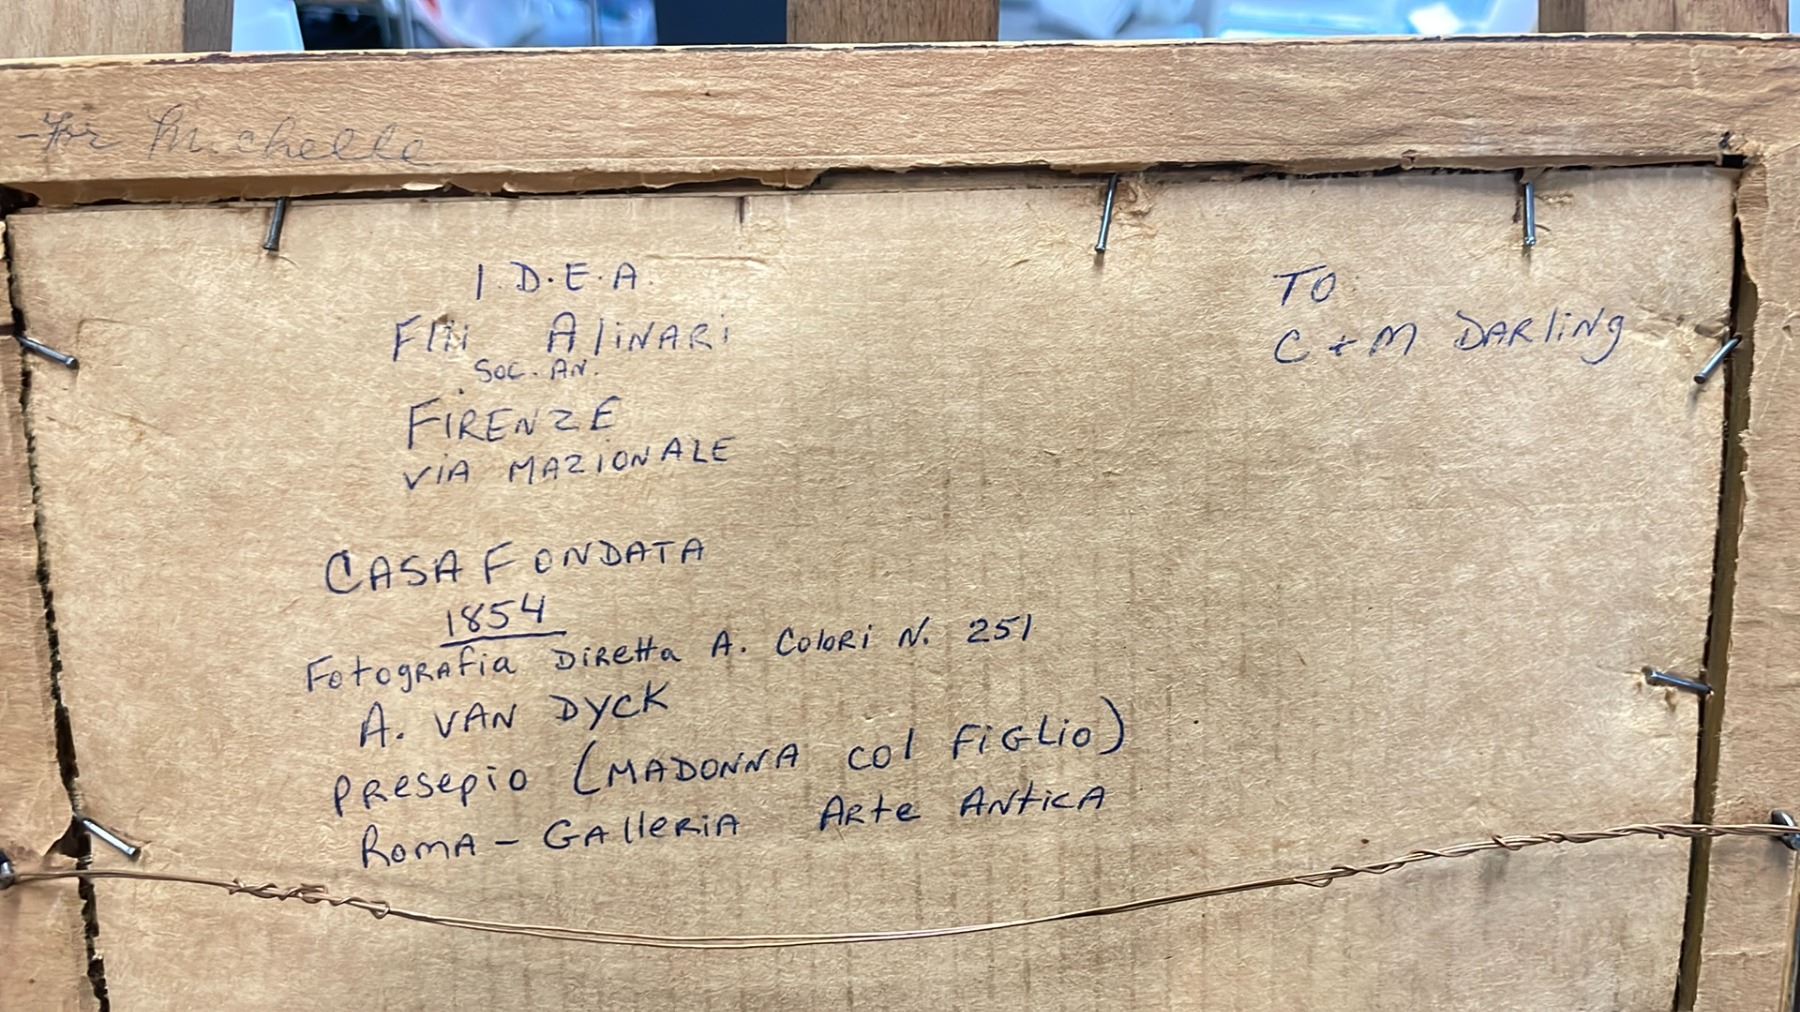 -For Michelle
I.D.E.A.
Flli Alinari
SOC. AN.
FIRENZE
VIA MAZIONALE
TO:
C + M DARling
CASA FONDATA
1854
Fotografia Diretta A. Colori N. 251
A. VAN DYCK
PResepio (MADONNA col FiGLio)
RomA - GAlleRiA ARte ANticA